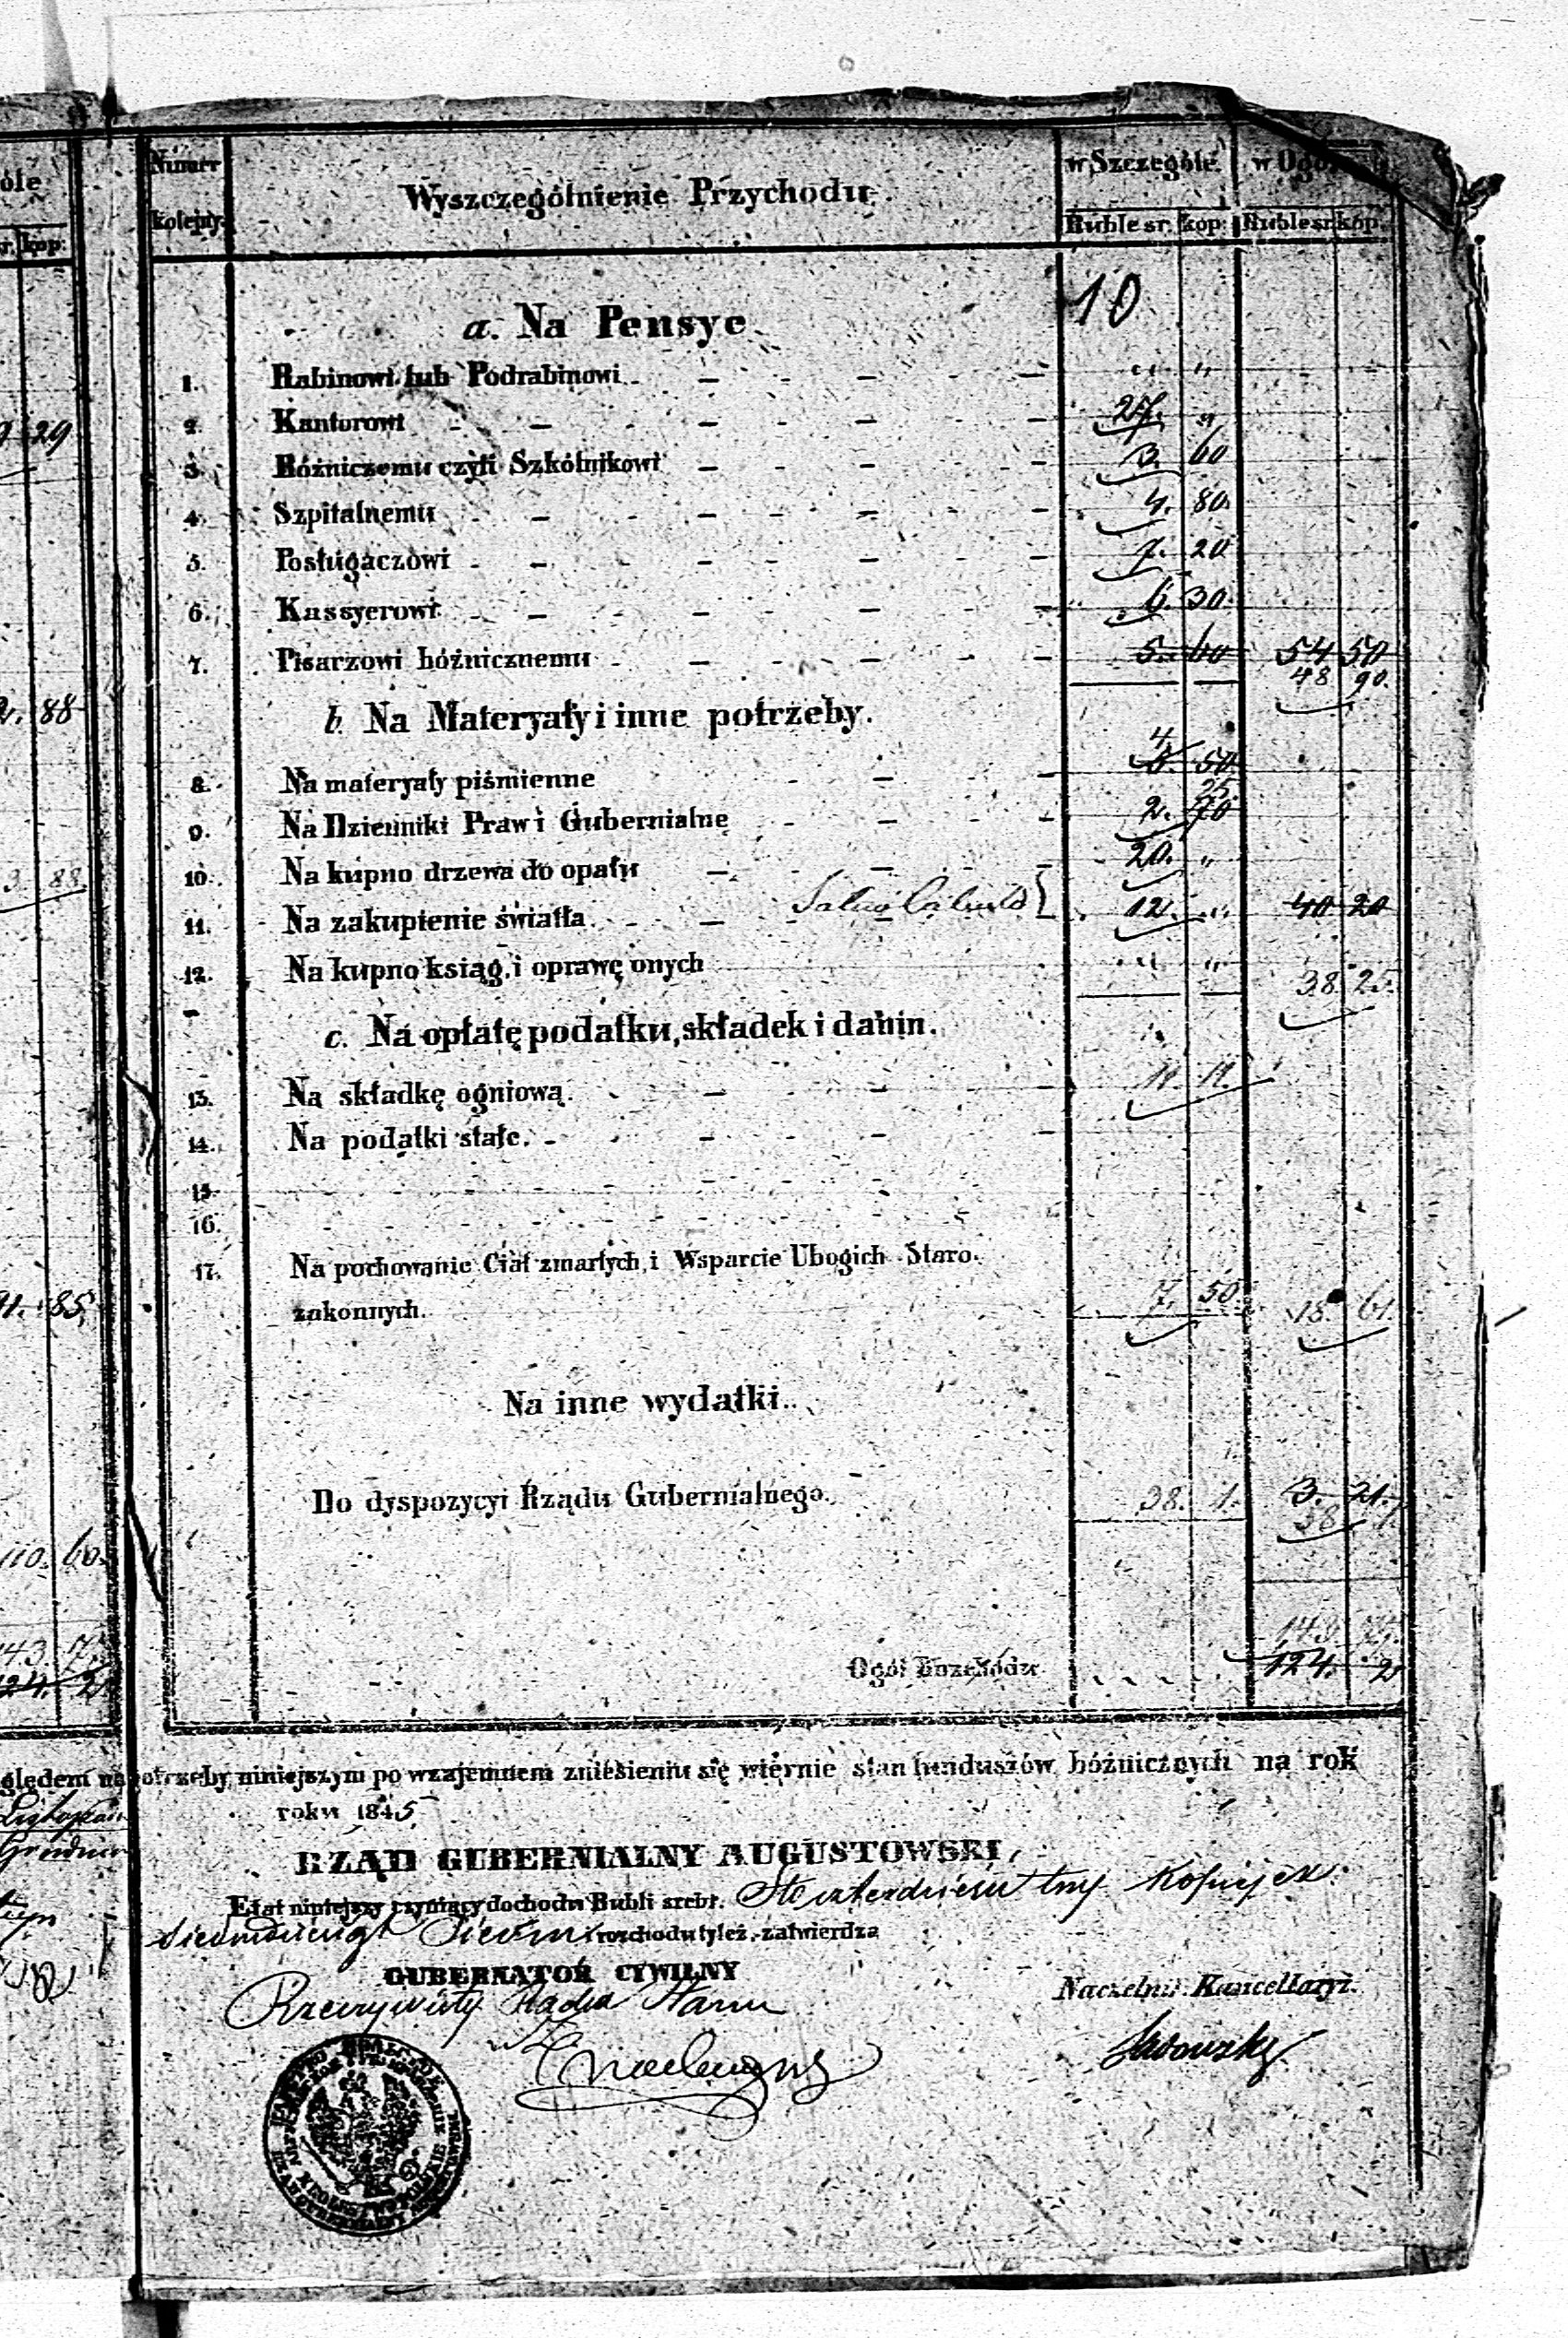 Numer kolejny
Wyszczególnienie Przychodu.
w Szczególe w Ogó
Ruble sr. kop: Ruble sr. kop.
óle
sr. kop:
10
a. Na Pensye
1. Rabinowi lub Podrabinowi „ „
2. Kantorowi 27. „
29
3. Bóżniczemu czyli Szkólnikowi 3. 60
4. Szpitalnemu 4. 80.
5. Posługaczowi 7. 20
6. Kassyerowi 6. 30.
7. Pisarzowi bóżnicznemu 5. 60 54 50
48 90.
88
b. Na Materyały i inne potrzeby.
4
8. Na materyały piśmienne 5. 50
25.
9. Na Dzienniki Praw i Gubernialne 2. 70
10. Na kupno drzewa do opału 20. „
3. 88.
11. Na zakupienie światła Salvo Calculo 12. „ 40 20
12. Na kupno ksiąg, i oprawę onych „ „ 38. 25.
c. Na opłatę podatku, składek i danin.
13. Na składkę ogniową. 11 11.
14. Na podatki stałe.
15.
16.
17. Na pochowanie Ciał zmarłych, i Wsparcie Ubogich Staro.
zakonnych. 7. 50. 18. 61.
91. 85.
Na inne wydatki.
Do dyspozycyi Rządu Gubernialnego. 38. 1. 3. 21.
38 1
110. 60.
143. 77.
143. 7
Ogół Rozchodu 124. 2
124. 2
ględem na potrzeby niniejszym po wzajemnem zniesieniu się wiernie stan funduszów bóżnicznych na rok
roku 1845
RZĄD GUBERNIALNY AUGUSTOWSKI,
Etat niniejszy czyniący dochodu Rubli srebr. Sto czterdzieści trzy Kopiejek
Siedmdziesiąt Siedm rozchodu tyleż, zatwierdza
GUBERNATOR CYWILNY
Rzeczywisty Radca Stanu
Naczelnik Kancellaryi.